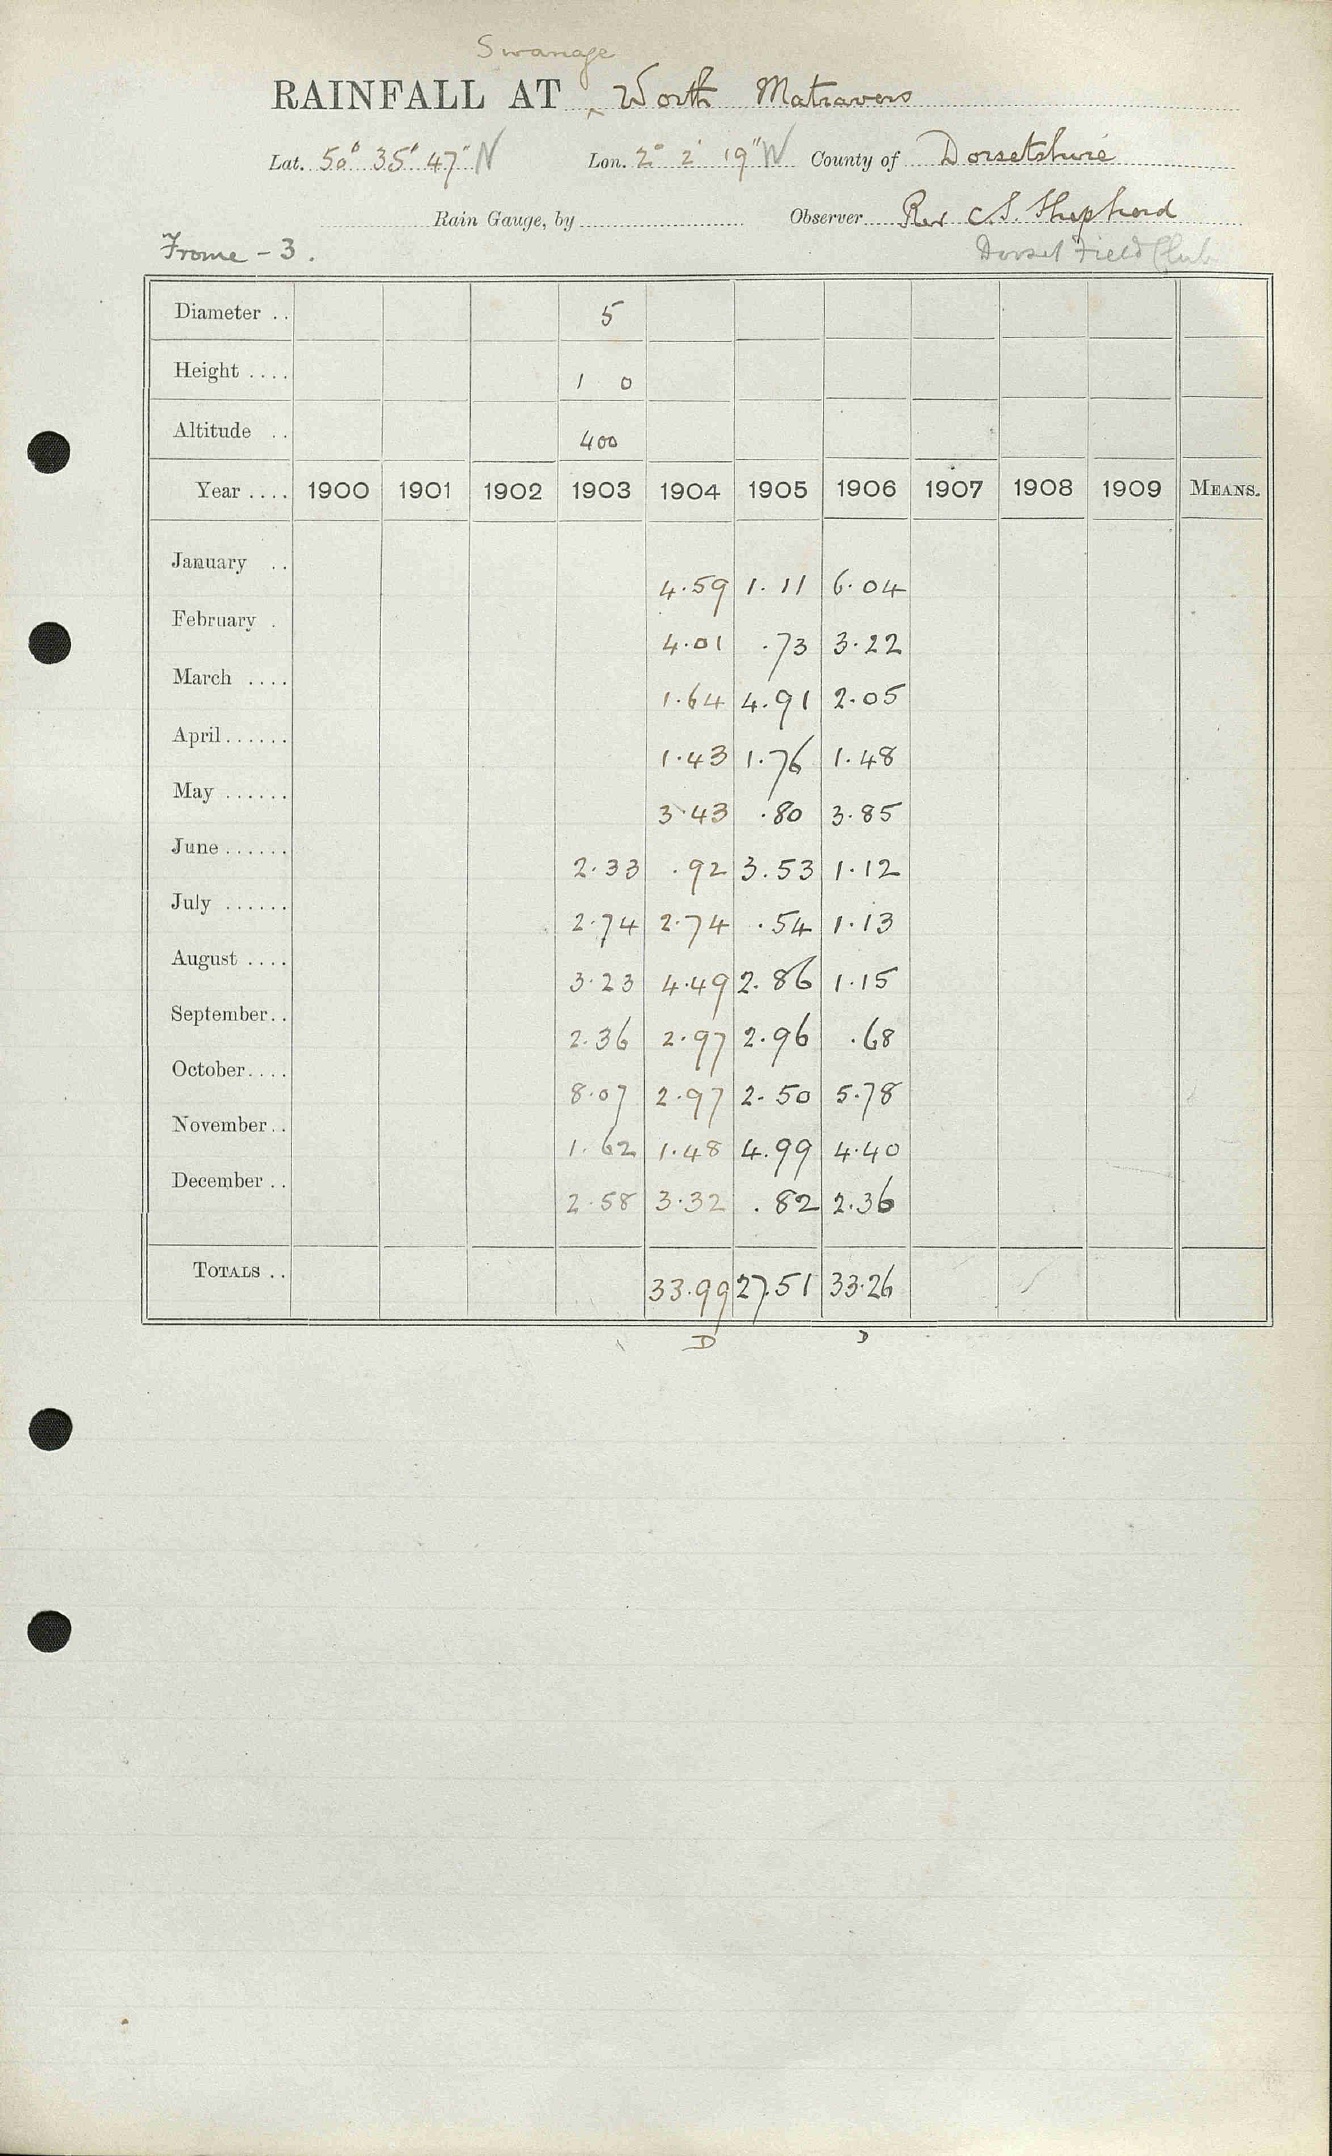 Swanage
RAINFALL AT ‸ Worth Matravers
Lat. 50° 35' 47" N Lon. 2° 2' 19" W County of Dorsetshire
Rain Gauge, by Observer Rev C.S. Shepherd
Frome - 3. Dorset Field Club
Diameter .. 5
Height .... 1 0
Altitude .. 400
Year .... 1900 1901 1902 1903 1904 1905 1906 1907 1908 1909 MEANS.
January .. 4.59 1.11 6.04
February . 4.01 .73 3.22
March .... 1.64 4.91 2.05
April...... 1.43 1.76 1.48
May ...... 3.43 .80 3.85
June...... 2.33 .92 3.53 1.12
July ...... 2.74 2.74 .54 1.13
August .... 3.23 4.49 2.86 1.15
September.. 2.36 2.97 2.96 .68
October.... 8.07 2.97 2.50 5.78
November.. 1.62 1.48 4.99 4.40
December .. 2.58 3.32 .82 2.36
TOTALS .. 33.99 27.51 33.26
D D